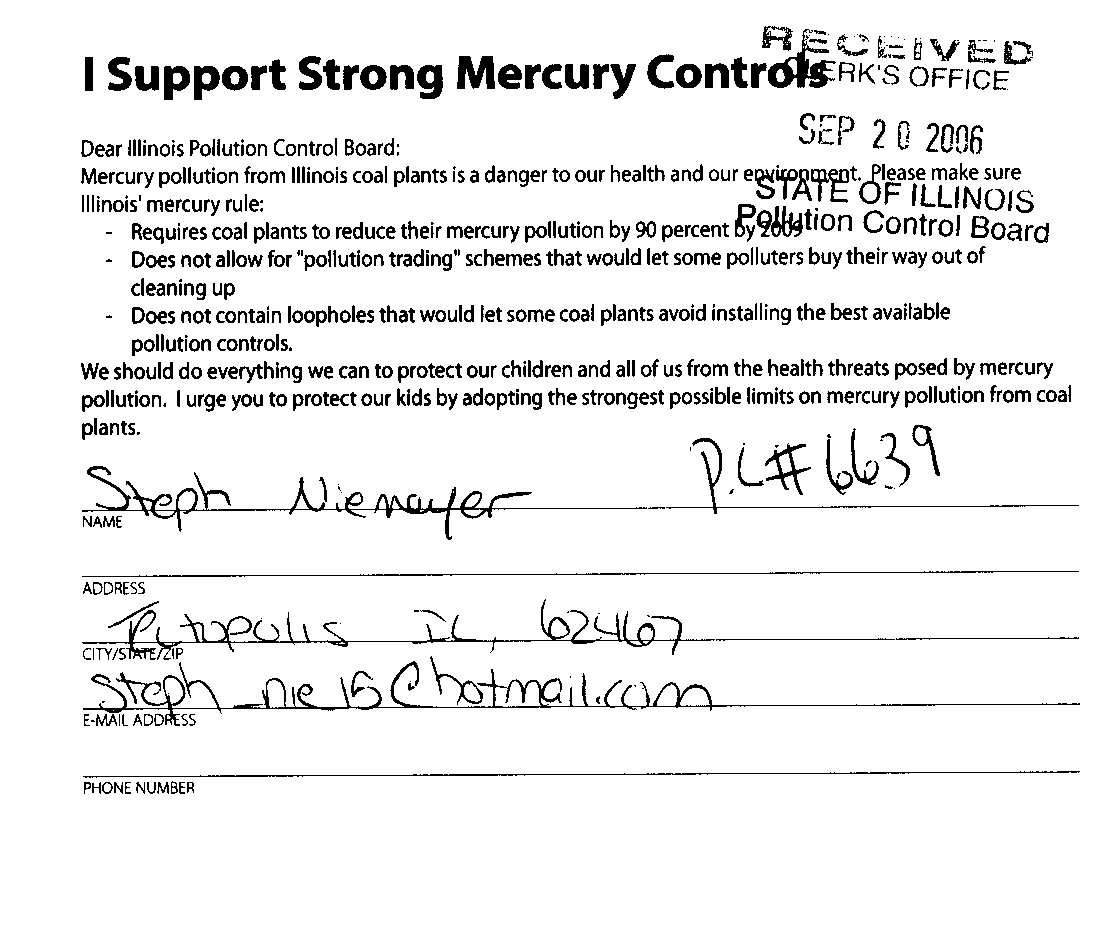 RECEIVED
CLERK'S OFFICE
I Support Strong Mercury Controls
SEP 20 2006
STATE OF ILLINOIS
Pollution Control Board
Dear Illinois Pollution Control Board:
Mercury pollution from Illinois coal plants is a danger to our health and our environment. Please make sure
Illinois' mercury rule:
- Requires coal plants to reduce their mercury pollution by 90 percent by 2009
- Does not allow for "pollution trading" schemes that would let some polluters buy their way out of
cleaning up
- Does not contain loopholes that would let some coal plants avoid installing the best available
pollution controls.
We should do everything we can to protect our children and all of us from the health threats posed by mercury
pollution. I urge you to protect our kids by adopting the strongest possible limits on mercury pollution from coal
plants.
P.C# 6639
Steph Niemeyer
NAME
ADDRESS
Teutopolis IL, 62467
CITY/STATE/ZIP
Steph_nie15@hotmail.com
E-MAIL ADDRESS
PHONE NUMBER